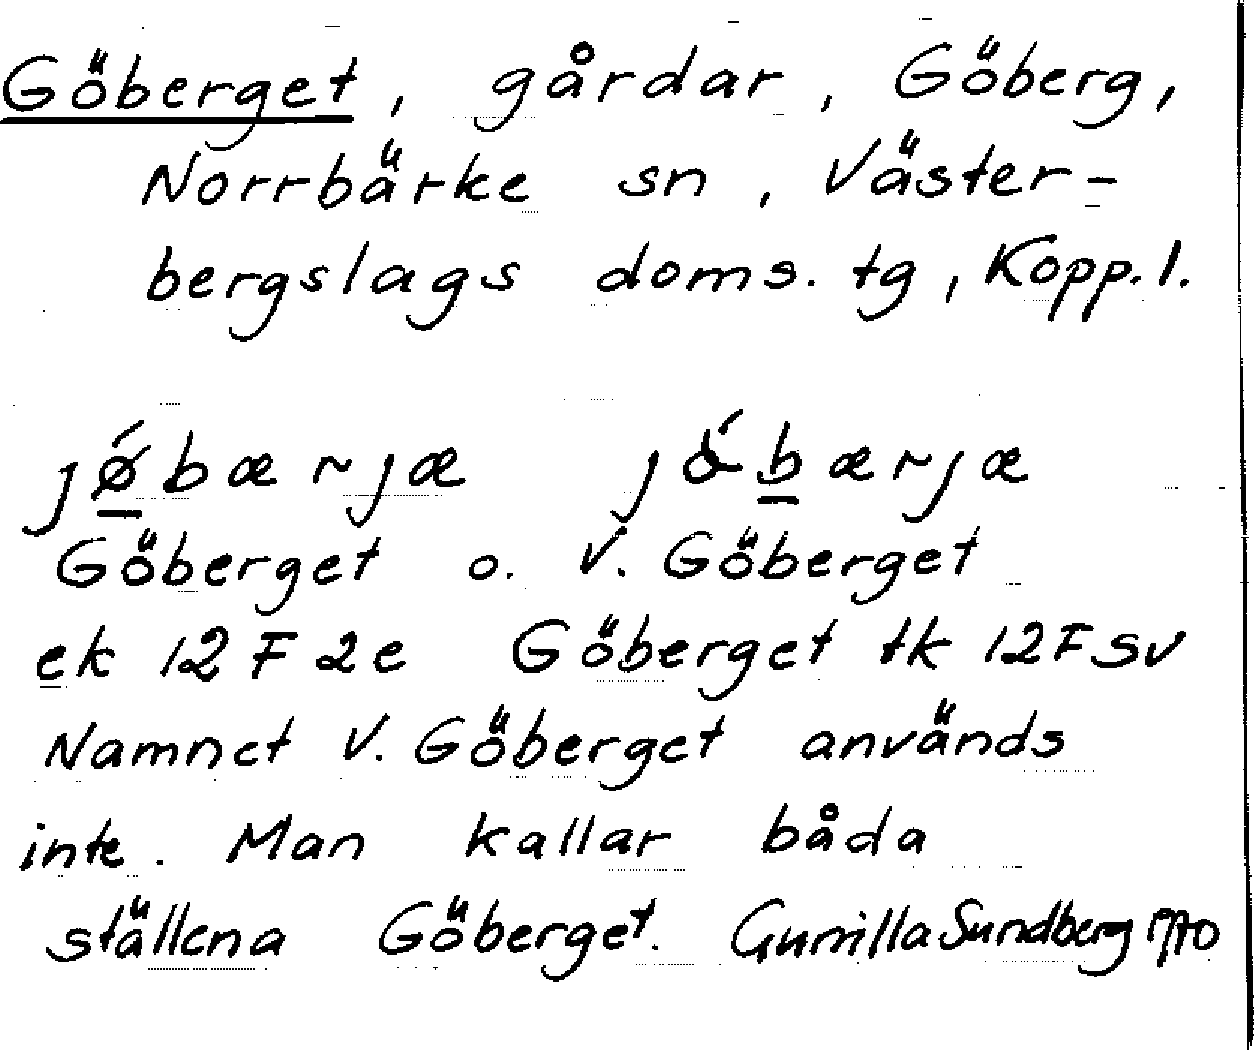 Göberget, gårdar, Göberg,
Norrbärke sn, Väster-
bergslags doms. tg, Kopp. l.
jǿbærjæ jóbærjæ
Göberget o. V. Göberget
ek 12 F 2e Göberget tk 12F SV
Namnet V. Göberget används
inte. Man kallar båda
ställena Göberget. Gunilla Sundberg 1970